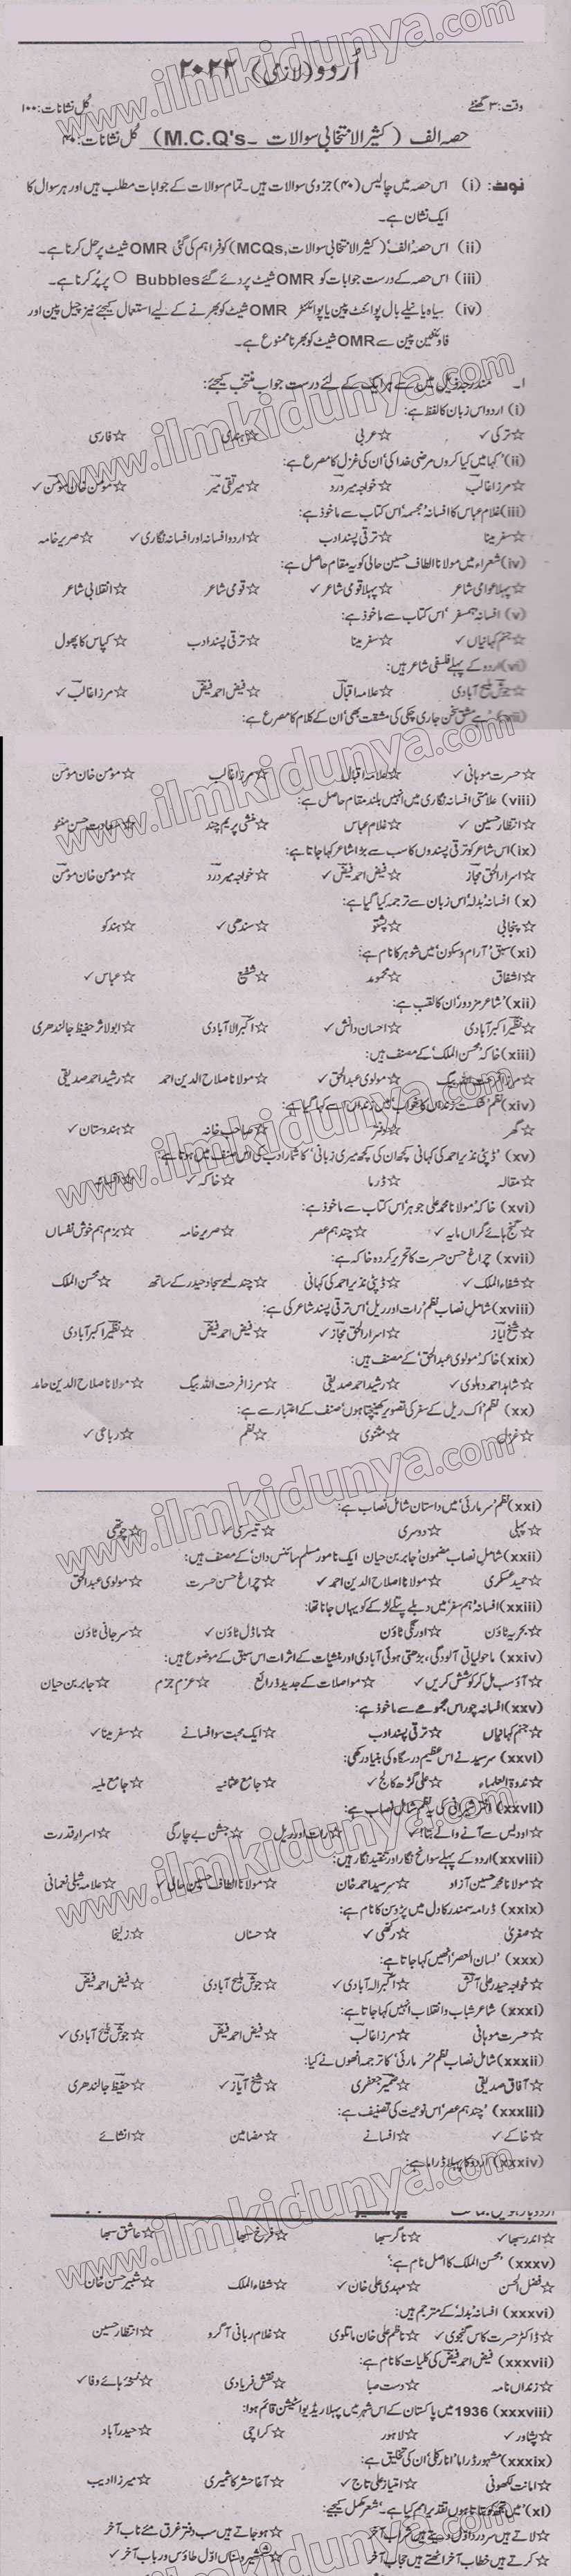 اُردو (لازمی) ۲۰۲۲
وقت: ۳ گھنٹے کُل نشانات: ۱۰۰
حصہ الف (کثیر الانتخابی سوالات - M.C.Q's) کُل نشانات: ۴۰
نوٹ: (i) اس حصہ میں چالیس (۴۰) جزوی سوالات ہیں۔ تمام سوالات کے جوابات مطلب ہیں اور ہر سوال کا
ایک نشان ہے۔
(ii) اس حصہ 'الف' (کثیر الانتخابی سوالات, MCQs) کو فراہم کی گئی OMR شیٹ پر حل کرنا ہے۔
(iii) اس حصہ کے درست جوابات کو OMR شیٹ پر دئے گئے Bubbles ○ پر پُر کرنا ہے۔
(iv) سیاہ یا نیلے بال پوائنٹ پین یا پوائنٹر OMR شیٹ کو بھرنے کے لیے استعمال کیجئے نیز جیل پین اور
فاؤنٹین پین سے OMR شیٹ کو بھرنا ممنوع ہے۔
۱۔ مندرجہ ذیل میں سے ہر ایک کے لئے درست جواب منتخب کیجئے:
(i) اردو اس زبان کا لفظ ہے:
☆ ترکی ✓ ☆ عربی ☆ ہندی ☆ فارسی
(ii) 'کہا میں کیا کروں مرضی خدا کی' اُن کی غزل کا مصرع ہے:
☆ مرزا غالب ☆ خواجہ میر درد ☆ میر تقی میر ☆ مومن خان مومن ✓
(iii) غلام عباس کا افسانہ 'مجسمہ' اس کتاب سے ماخوذ ہے:
☆ سفر مینا ☆ ترقی پسند ادب ☆ اردو افسانہ اور افسانہ نگاری ✓ ☆ صریر خامہ
(iv) شعراء میں مولانا الطاف حسین حالی کو یہ مقام حاصل ہے:
☆ پہلا عوامی شاعر ☆ پہلا قومی شاعر ✓ ☆ قومی شاعر ☆ انقلابی شاعر
(v) افسانہ 'ہمسفر' اس کتاب سے ماخوذ ہے:
☆ جنم کہانیاں ✓ ☆ سفر مینا ☆ ترقی پسند ادب ☆ کپاس کا پھول
(vi) اردو کے پہلے فلسفی شاعر ہیں:
☆ جوش ملیح آبادی ☆ علامہ اقبال ☆ فیض احمد فیض ☆ مرزا غالب ✓
(vii) 'ہے مشق سخن جاری چکی کی مشقت بھی' اُن کے کلام کا مصرع ہے:
☆ حسرت موہانی ✓ ☆ علامہ اقبال ☆ مرزا غالب ☆ مومن خان مومن
(viii) علامتی افسانہ نگاری میں انہیں بلند مقام حاصل ہے:
☆ انتظار حسین ✓ ☆ غلام عباس ☆ منشی پریم چند ☆ سعادت حسن منٹو
(ix) اس شاعر کو ترقی پسندوں کا سب سے بڑا شاعر کہا جاتا ہے:
☆ اسرار الحق مجاز ☆ فیض احمد فیض ✓ ☆ خواجہ میر درد ☆ مومن خان مومن
(x) افسانہ 'بدلہ' اس زبان سے ترجمہ کیا گیا ہے:
☆ پنجابی ☆ پشتو ☆ سندھی ✓ ☆ ہندکو
(xi) سبق 'آرام و سکون' میں شوہر کا نام ہے:
☆ اشفاق ☆ محمود ☆ شفیع ☆ عباس ✓
(xii) 'شاعر مزدور' اُن کا لقب ہے:
☆ نظیر اکبر آبادی ☆ احسان دانش ✓ ☆ اکبر الہ آبادی ☆ ابو لاثر حفیظ جالندھری
(xiii) خاکہ 'محسن الملک' کے مصنف ہیں:
☆ مرزا فرحت اللہ بیگ ☆ مولوی عبدالحق ✓ ☆ مولانا صلاح الدین احمد ☆ رشید احمد صدیقی
(xiv) نظم 'شکست زنداں کا خواب' میں زنداں سے کہا گیا ہے:
☆ گھر ☆ دفتر ☆ صاحب خانہ ☆ ہندوستان ✓
(xv) 'ڈپٹی نذیر احمد کی کہانی کچھ ان کی کچھ میری زبانی' کا شمار ادب کی اس صنف میں ہوتا ہے:
☆ مقالہ ☆ ڈرما ☆ خاکہ ✓ ☆ افسانہ
(xvi) خاکہ 'مولانا محمد علی جوہر' اس کتاب سے ماخوذ ہے:
☆ گنج ہائے گراں مایہ ✓ ☆ چند ہم عصر ☆ صریر خامہ ☆ بزم ہم خوش نفساں
(xvii) چراغ حسن حسرت کا تحریر کردہ خاکہ ہے:
☆ شفاء الملک ✓ ☆ ڈپٹی نذیر احمد کی کہانی ☆ چند لمحے سجاد حیدر کے ساتھ ☆ محسن الملک
(xviii) شامل نصاب نظم 'رات اور ریل' اس ترقی پسند شاعر کی ہے:
☆ شیخ ایاز ☆ اسرار الحق مجاز ✓ ☆ فیض احمد فیض ☆ نظیر اکبر آبادی
(xix) خاکہ 'مولوی عبدالحق' کے مصنف ہیں:
☆ شاہد احمد دہلوی ✓ ☆ رشید احمد صدیقی ☆ مرزا فرحت اللہ بیگ ☆ مولانا صلاح الدین حامد
(xx) نظم 'اک ریل کے سفر کی تصویر کھینچتا ہوں' صنف کے اعتبار سے ہے:
☆ غزل ☆ مثنوی ☆ نظم ☆ رباعی ✓
(xxi) نظم 'سر مارئی' میں داستان شامل نصاب ہے:
☆ پہلی ☆ دوسری ☆ تیسری ✓ ☆ چوتھی
(xxii) شامل نصاب مضمون 'جابر بن حیان ایک نامور مسلم سائنس دان' کے مصنف ہیں:
☆ حمید عسکری ☆ مولانا صلاح الدین احمد ✓ ☆ چراغ حسن حسرت ☆ مولوی عبدالحق
(xxiii) افسانہ 'ہم سفر' میں دبلے پتلے لڑکے کو یہاں جانا تھا:
☆ بحریہ ٹاؤن ☆ اورنگی ٹاؤن ☆ ماڈل ٹاؤن ✓ ☆ سرجانی ٹاؤن
(xxiv) ماحولیاتی آلودگی، بڑھتی ہوئی آبادی اور منشیات کے اثرات اس سبق کے موضوع ہیں:
☆ آؤ سب مل کر کوشش کریں ✓ ☆ مواصلات کے جدید ذرائع ☆ عزم جزم ☆ جابر بن حیان
(xxv) افسانہ 'چور' اس مجموعے سے ماخوذ ہے:
☆ جنم کہانیاں ☆ ترقی پسند ادب ☆ ایک محبت سو افسانے ☆ سفر مینا ✓
(xxvi) سرسید نے اس عظیم درسگاہ کی بنیاد رکھی:
☆ ندوۃ العلماء ☆ علی گڑھ کالج ✓ ☆ جامع عثمانیہ ☆ جامع ملیہ
(xxvii) اختر شیرانی کی یہ نظم شامل نصاب ہے:
☆ او دیس سے آنے والے بتا! ✓ ☆ رات اور ریل ☆ جشن بے چارگی ☆ اسرار قدرت
(xxviii) اردو کے پہلے سوانح نگار اور تنقید نگار ہیں:
☆ مولانا محمد حسین آزاد ☆ سرسید احمد خان ☆ مولانا الطاف حسین حالی ✓ ☆ علامہ شبلی نعمانی
(xxix) ڈرامہ 'سمندر کا دل' میں پڑوسن کا نام ہے:
☆ صغریٰ ☆ رکھی ✓ ☆ حسناں ☆ زلیخا
(xxx) 'لسان العصر' انھیں کہا جاتا ہے:
☆ خواجہ حیدر علی آتش ☆ اکبر الہ آبادی ✓ ☆ جوش ملیح آبادی ☆ فیض احمد فیض
(xxxi) شاعر شباب و انقلاب انہیں کہا جاتا ہے:
☆ حسرت موہانی ☆ مرزا غالب ☆ فیض احمد فیض ☆ جوش ملیح آبادی ✓
(xxxii) شامل نصاب نظم 'سُر مارئی' کا ترجمہ انھوں نے کیا:
☆ آفاق صدیقی ☆ ضمیر جعفری ☆ شیخ ایاز ✓ ☆ حفیظ جالندھری
(xxxiii) 'چند ہم عصر' اس نوعیت کی تصنیف ہے:
☆ خاکے ✓ ☆ افسانے ☆ مضامین ☆ انشائے
(xxxiv) اردو کا پہلا ڈراما ہے:
☆ اندر سبھا ✓ ☆ ناگر سبھا ☆ فرخ سبھا ☆ عاشق سبھا
(xxxv) 'محسن الملک' کا اصل نام ہے:
☆ فضل الحسن ☆ مہدی علی خان ✓ ☆ شفاء الملک ☆ شبیر حسن خان
(xxxvi) افسانہ 'بدلہ' کے مترجم ہیں:
☆ ڈاکٹر حسرت کاس گنجوی ✓ ☆ ناظم علی خان ماتلوی ☆ غلام ربانی آگرو ☆ انتظار حسین
(xxxvii) فیض احمد فیض کی کلیات کا نام ہے:
☆ زنداں نامہ ☆ دست صبا ☆ نقش فریادی ☆ نسخہ ہائے وفا ✓
(xxxviii) 1936 میں پاکستان کے اس شہر میں پہلا ریڈیو اسٹیشن قائم ہوا:
☆ پشاور ✓ ☆ لاہور ☆ کراچی ☆ حیدرآباد
(xxxix) مشہور ڈراما 'انارکلی' اُن کی تخلیق ہے:
☆ امانت لکھنوی ☆ امتیاز علی تاج ✓ ☆ آغا حشر کاشمیری ☆ میرزا ادیب
(xl) 'میں تجھ کو بتاتا ہوں تقدیر امم کیا ہے۔' شعر مکمل کیجیے:
☆ لاتے ہیں سرور اوّل دیتے ہیں شراب آخر ☆ ہو جاتے ہیں سب دفتر غرق مئے ناب آخر
☆ کرتے ہیں خطاب آخر اٹھتے ہیں حجاب آخر ☆ شمشیر و سناں اوّل طاؤس و رباب آخر ✓
www.ilmkidunya.com